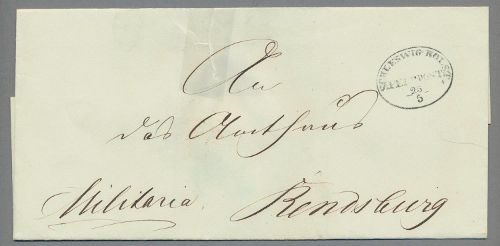 An
das Amthaus
Militaria. Rendsburg
SCHLESWIG HOLST.
FELDPOST
25
5